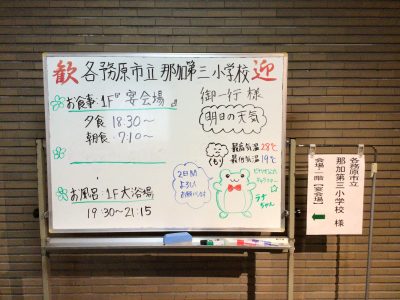 歓 各務原市立 那加第三小学校 迎
御一行様
お食事：1F『宴会場』
夕食 18:30〜
朝食 7:10〜
お風呂：1F大浴場
19:30〜21:15
明日の天気
くもり
最高気温 28℃
最低気温 19℃
2日間
よろしく
お願いします
キャラクター
各務原市立
那加第三小学校 様
会場：一階【宴会場】